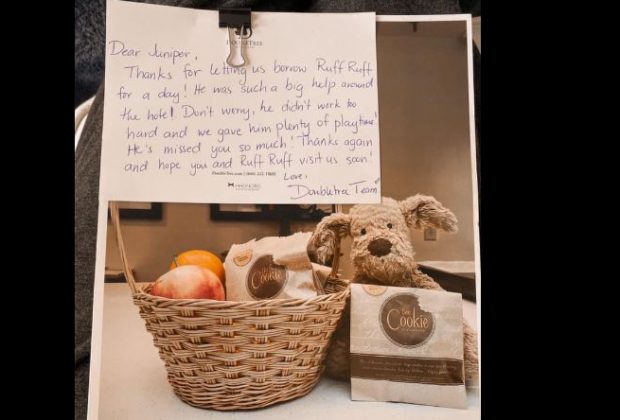 DOUBLETREE
Dear Juniper,
Thanks for letting us borrow Ruff Ruff
for a day! He was such a big help around
the hotel. Don't worry, he didn't work too
hard and we gave him plenty of playtime!
He's missed you so much! Thanks again
and hope you and Ruff Ruff visit us soon!
Love,
Doubletree Team
the
Cookie
the
Cookie